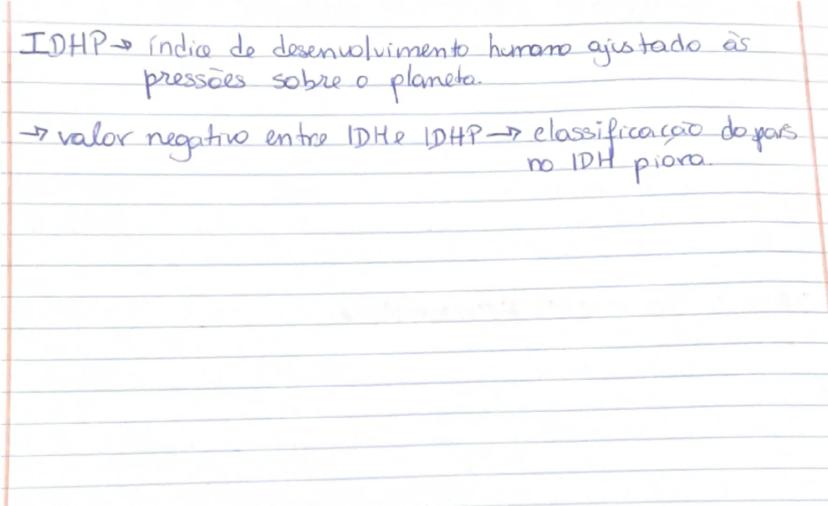 IDHP→ índice de desenvolvimento humano ajustado às
pressões sobre o planeta.
→ valor negativo entre IDH e IDHP → classificação do país
no IDH piora.